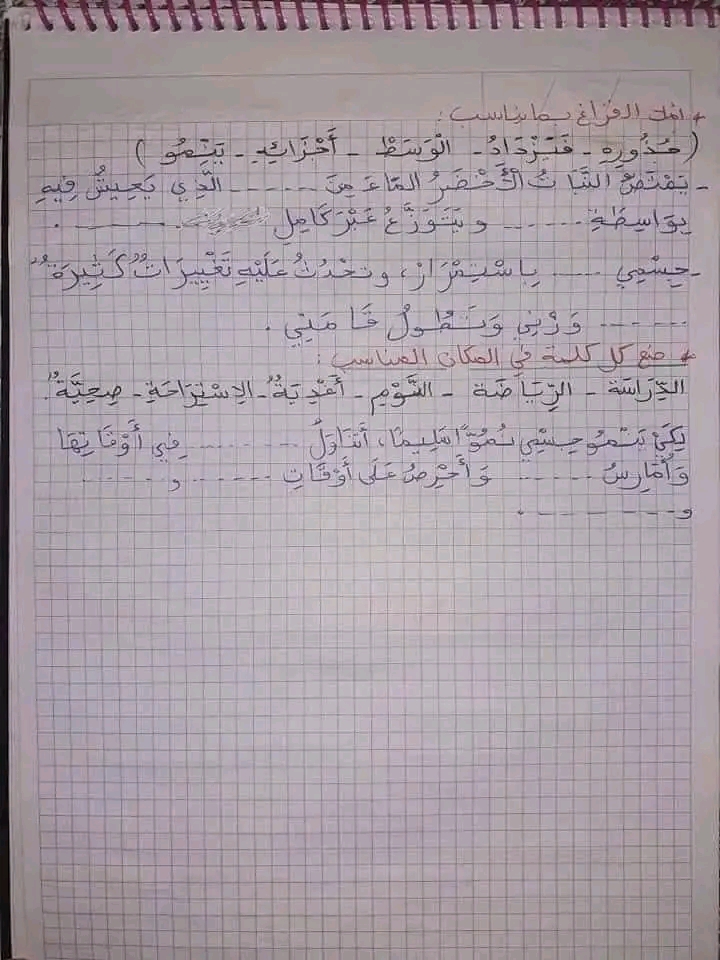 * املأ الفراغ بما يناسب :
( جُذُورِهِ - فَيَزْدَادُ - الْوَسَطْ - أَجْزَائِهِ - يَنْمُو )
- يَمْتَصُّ النَّبَاتُ الْأَخْضَرُ المَاءَ مِنَ ------ الَّذِي يَعِيشُ فِيهِ
بِوَاسِطَةِ ------ وَيَتَوَزَّعُ عَبْرَ كَامِلِ ------ .
- جِسْمِي ---- بِاسْتِمْرَارْ، وتَحْدُثُ عَلَيْهِ تَغْيِيرَاتُُ كَثِيرَةُُ
------ وَزْنِي وَتَطُولُ قَامَتِي .
* ضع كل كلمة في المكان المناسب :
الدِّرَاسَة - الرِّيَاضَة - النَّوْمِ - أَغْذِيَةُُ - الاِسْتِرَاحَةِ - صِحِيَّةُُ.
لِكَيْ يَنْمُو جِسْمِي نُمُوًّا سَلِيمًا، أَتَنَاوَلُ -------- فِي أَوْقَاتِهَا
وَأُمَارِسُ ------ وَأَحْرِصُ عَلَى أَوْقَاتِ ------ و ------
و ------ .